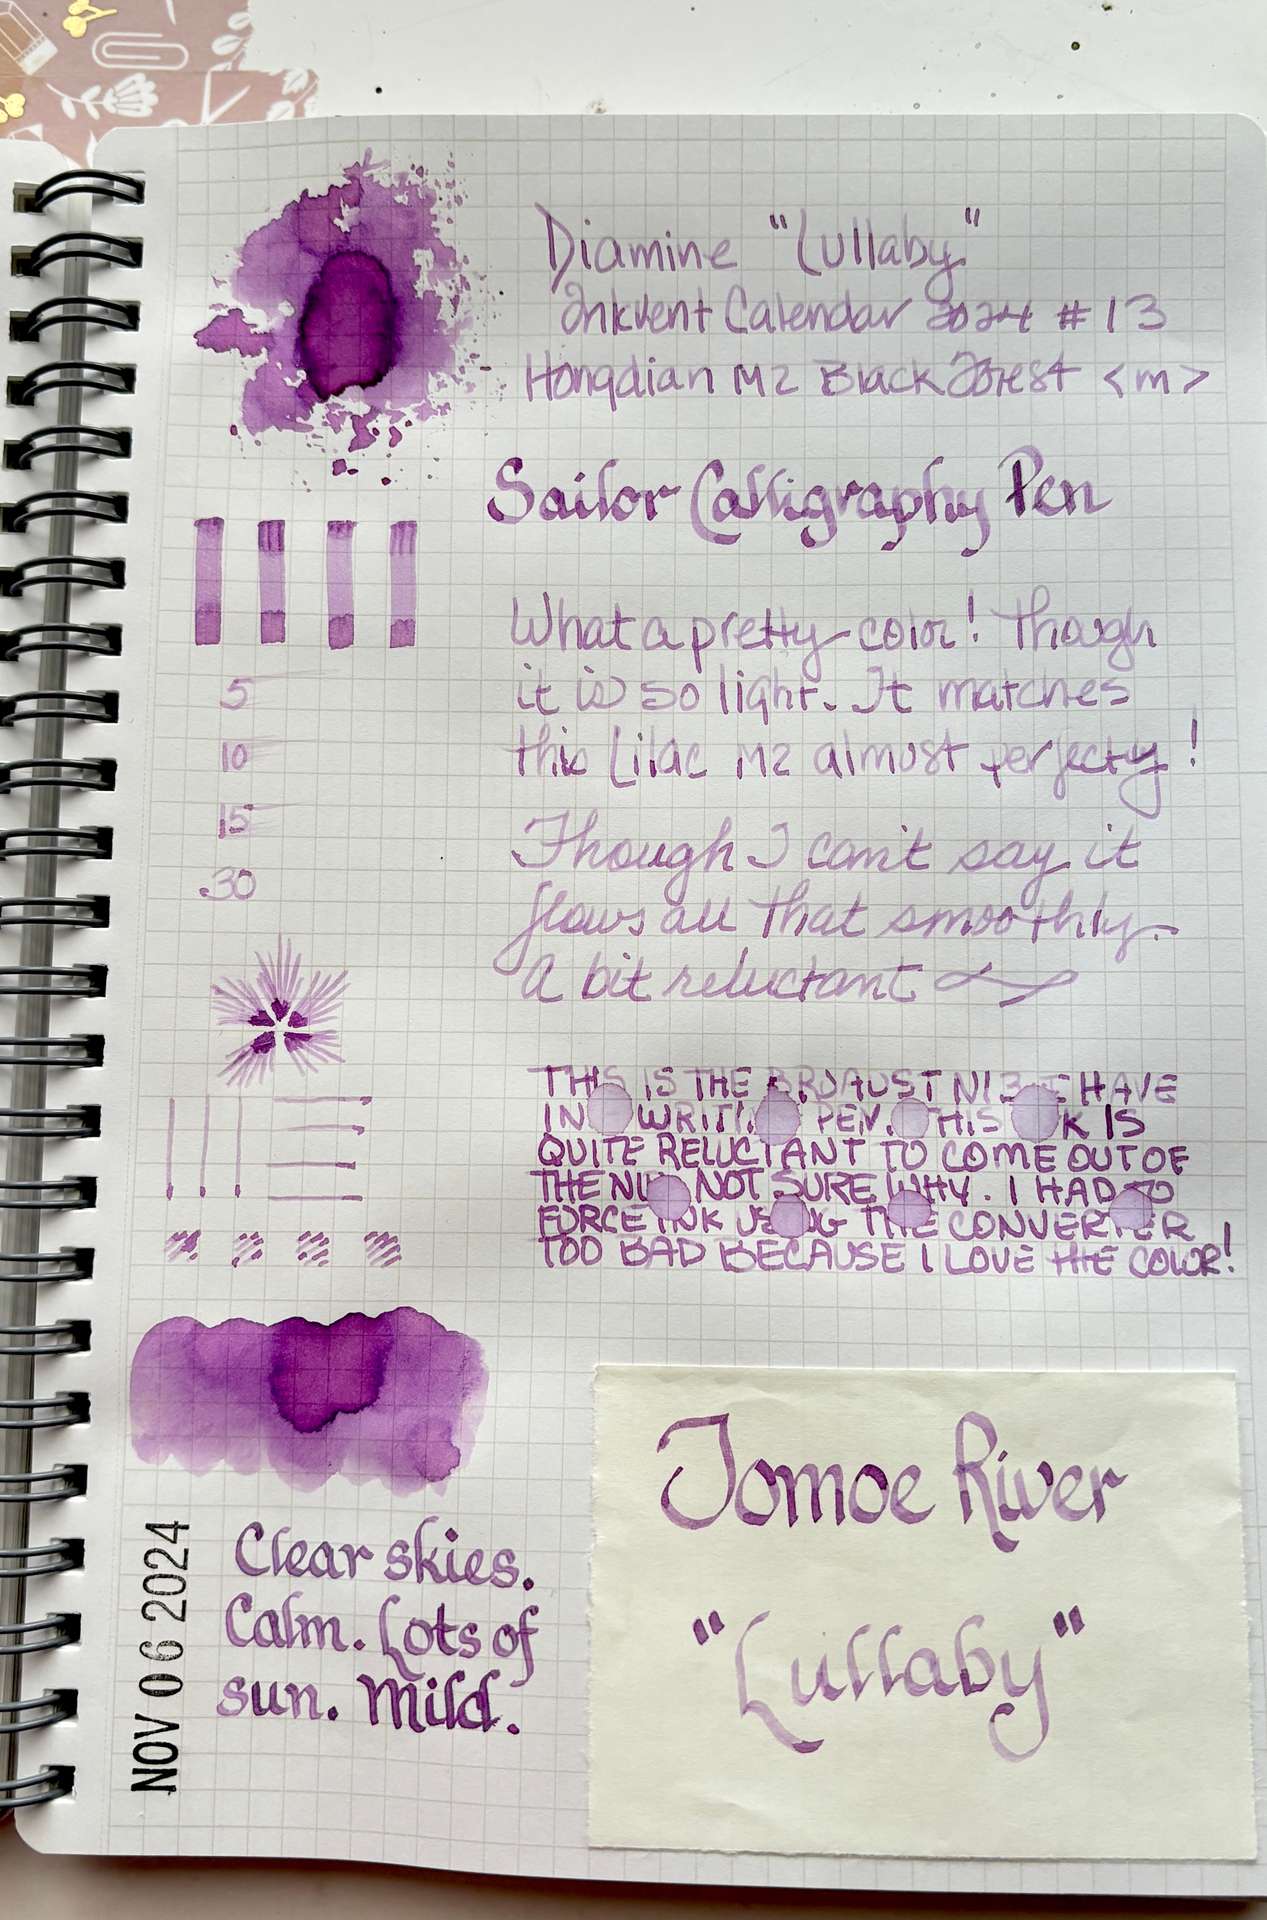 Diamine "Lullaby"
Inkvent Calendar 2024 #13
Hongdian M2 Black Forest <m>
Sailor Calligraphy Pen
What a pretty color! Though
it is so light. It matches
this Lilac M2 almost perfecty!
Though I can't say it
flows all that smoothly.
A bit reluctant
5
10
15
30
THIS IS THE BROAUST NIB I HAVE
IN WRITING PEN. THIS INK IS
QUITE RELUCTANT TO COME OUT OF
THE NIB. NOT SURE WHY. I HAD TO
FORCE INK USING THE CONVERTER
TOO BAD BECAUSE I LOVE THE COLOR!
NOV 06 2024
Clear skies.
Calm. Lots of
sun. Mild.
Tomoe River
"Lullaby"